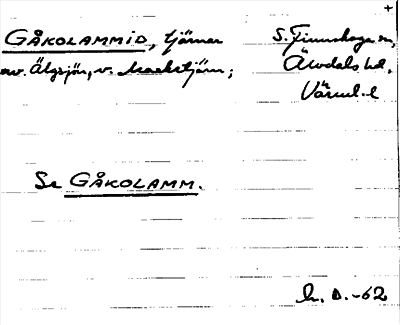 +
GÅKOLAMMID, tjärnar S. Finnskoga sn,
nv. Älgsjön, v. Maaketjärn; Älvdals hd,
Värml. l
Se GÅKOLAMM.
L. D. -62